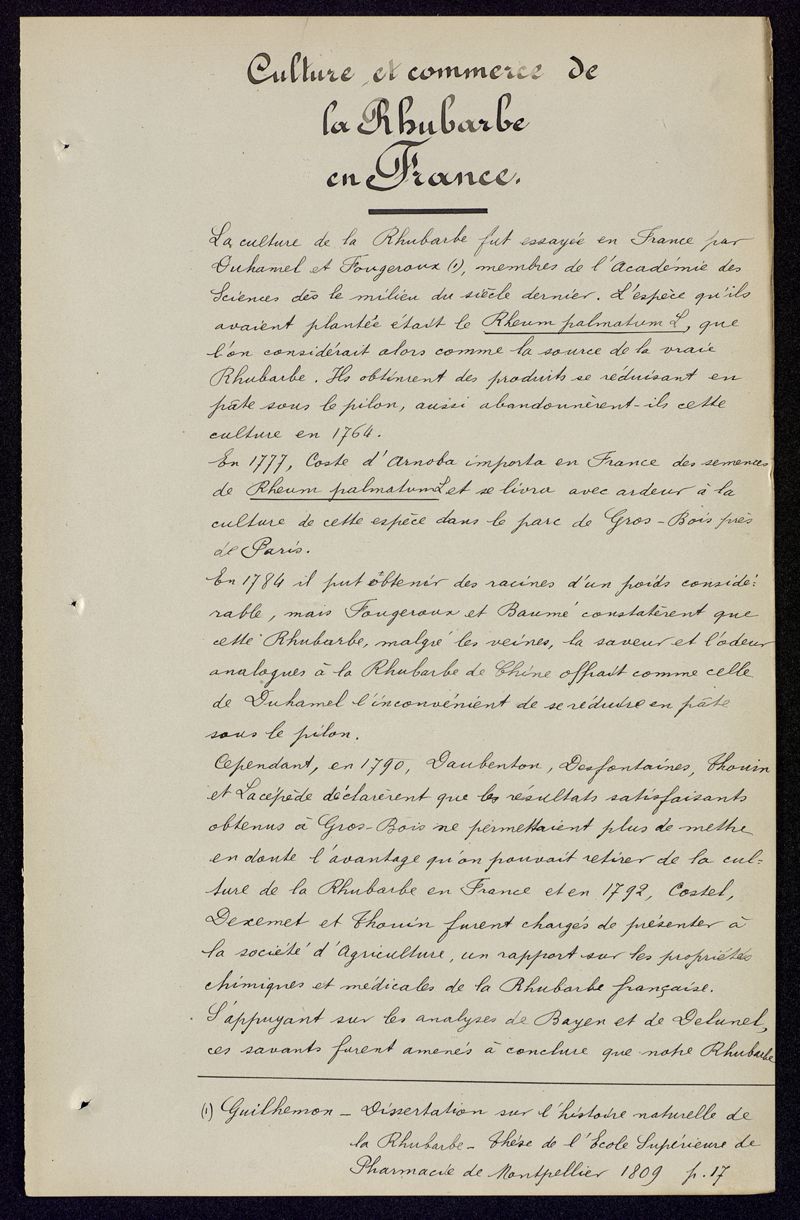 Culture et commerce de
la Rhubarbe
en France.
La culture de la Rhubarbe fut essayée en France par
Duhamel et Fougeroux (1), membres de l'Académie des
Sciences dès le milieu du siècle dernier. L'espèce qu'ils
avaient plantée était le Rheum palmatum L, que
l'on considérait alors comme la source de la vraie
Rhubarbe. Ils obtinrent des produits se réduisant en
pâte sous le pilon, aussi abandonnèrent-ils cette
culture en 1764.
En 1777, Coste d'Arnoba importa en France des semences
de Rheum palmatum L et se livra avec ardeur à la
culture de cette espèce dans le parc de Gros-Bois près
de Paris.
En 1784 il put obtenir des racines d'un poids considé=
rable, mais Fougeroux et Baumé constatèrent que
cette Rhubarbe, malgré les veines, la saveur et l'odeur
analogues à la Rhubarbe de Chine offrait comme celle
de Duhamel l'inconvénient de se réduire en pâte
sous le pilon.
Cependant, en 1790, Daubenton, Desfontaines, Thouin
et Lacépède déclarèrent que les résultats satisfaisants
obtenus à Gros-Bois ne permettaient plus de mettre
en doute l'avantage qu'on pouvait retirer de la cul=
ture de la Rhubarbe en France et en 1792, Costel,
Dexemet et Thouin furent chargés de présenter à
la société d'Agriculture, un rapport sur les propriétés
chimiques et médicales de la Rhubarbe française.
S'appuyant sur les analyses de Bayen et de Delunel,
ces savants furent amenés à conclure que notre Rhubarbe
(1) Guilhemon - Dissertation sur l'histoire naturelle de
la Rhubarbe - Thèse de l'Ecole Supérieure de
Pharmacie de Montpellier 1809 p. 17